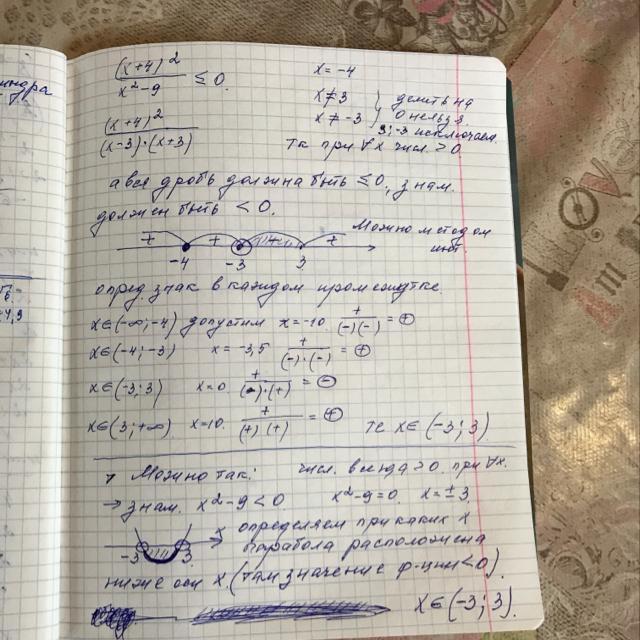 (x+4)² / x²-9 ≤ 0. x = -4
x ≠ 3 } делить на
x ≠ -3 } 0 нельзя.
3; -3 исключаем.
(x+4)² / (x-3)·(x+3) тк при ∀x числ. ≥ 0
а вся дробь должна быть ≤ 0, знам.
должен быть < 0.
Можно методом
инт.
+ + +
-4 -3 3
опред. знак в каждом промежутке.
x∈(-∞; -4) допустим x = -10. + / (-)(-) = +
x∈(-4; -3) x = -3,5 + / (-)·(-) = +
x∈(-3; 3) x=0 + / (-)·(+) = -
x∈(3; +∞) x=10. + / (+)(+) = + те x∈(-3; 3)
Можно так: числ. всегда ≥0 при ∀x.
→ знам. x²-9<0. x²-9=0. x = ±3
-3 3 x определяем при каких x
парабола расположена
ниже оси X. (там значение ф-ции <0).
x∈(-3; 3).
индра
LOVE
Am